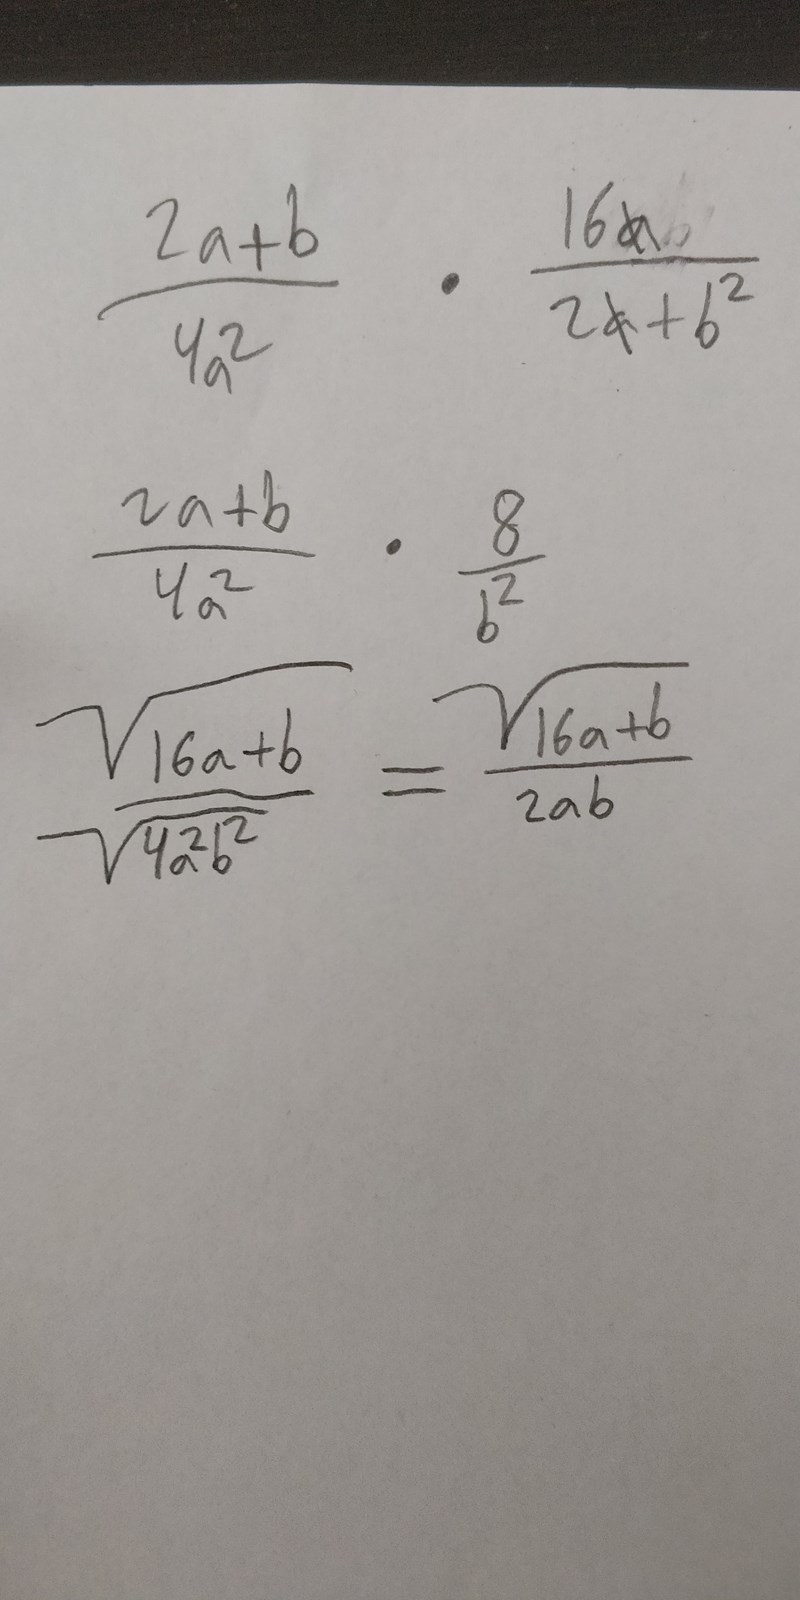 (2a+b)/(4a²) · (16a)/(2a+b²)
(2a+b)/(4a²) · 8/b²
√(16a+b)/√(4a²b²) = √(16a+b)/(2ab)